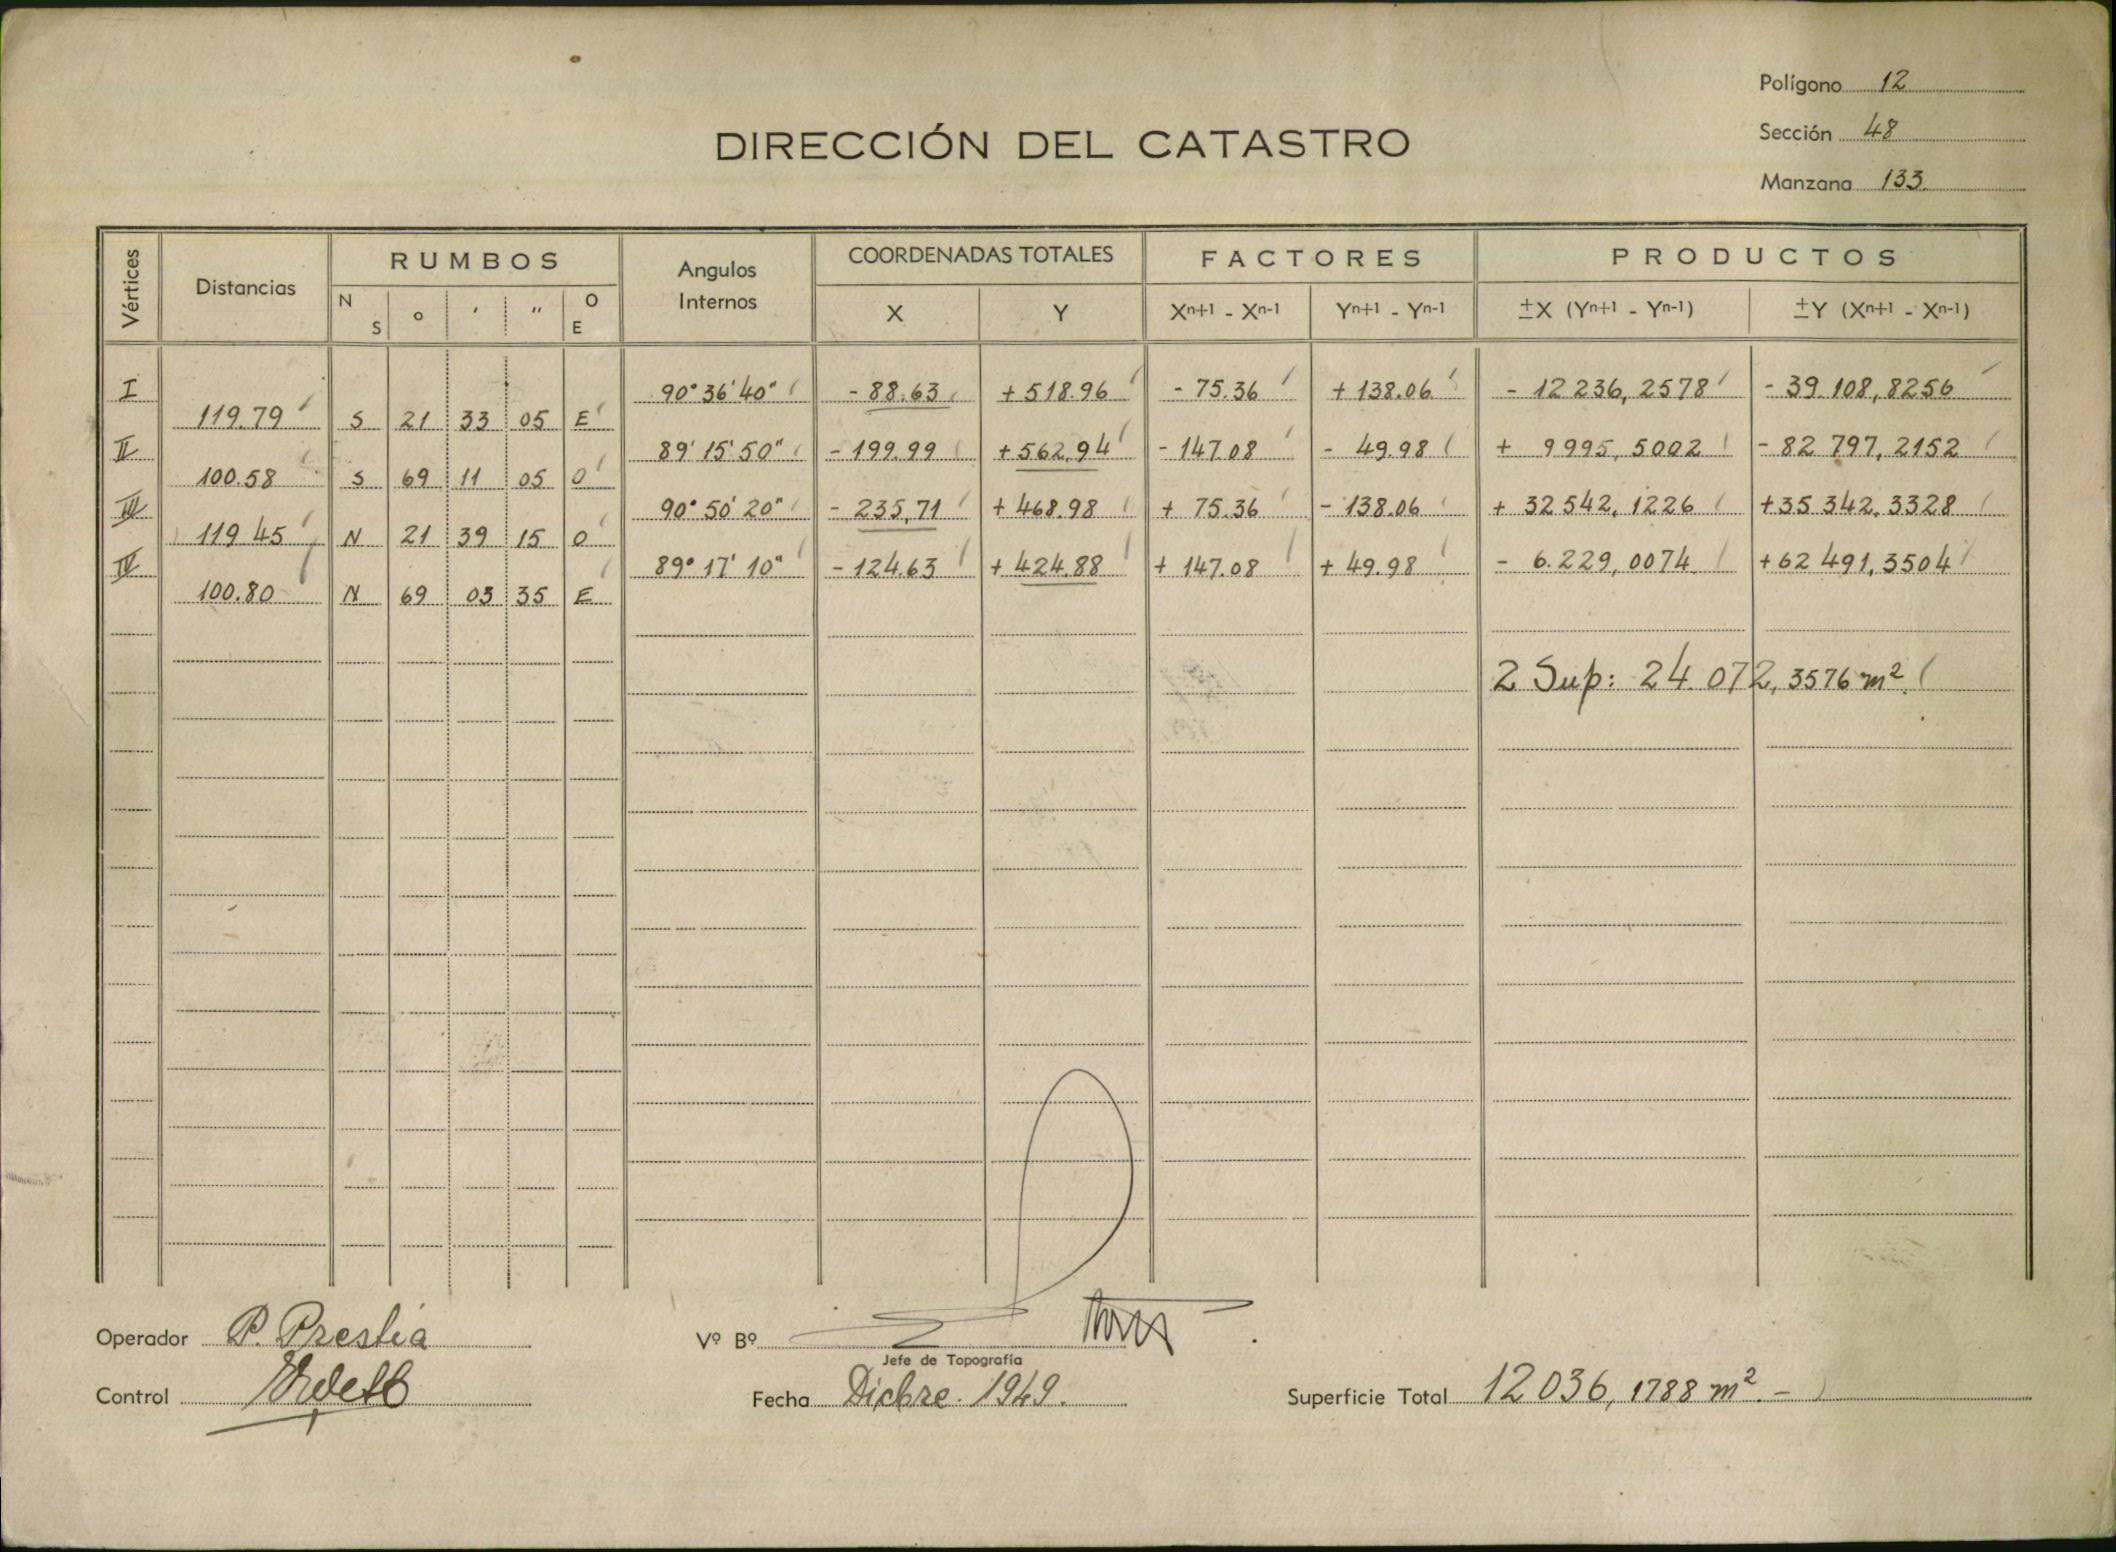 Polígono 12
Sección 48
Manzana 133
DIRECCIÓN DEL CATASTRO
Vértices Distancias RUMBOS Angulos Internos COORDENADAS TOTALES FACTORES PRODUCTOS
N S ° ' " O E X Y Xn+1 - Xn-1 Yn+1 - Yn-1 ±X (Yn+1 - Yn-1) ±Y (Xn+1 - Xn-1)
I 90° 36' 40" - 88.63 + 518.96 - 75.36 + 138.06 - 12 236, 2578 - 39.108, 8256
119.79 S 21 33 05 E
II 89° 15' 50" - 199.99 + 562,94 - 147.08 - 49.98 + 9 995, 5002 - 82 797, 2152
100.58 S 69 11 05 O
III 90° 50' 20" - 235,71 + 468.98 + 75.36 - 138.06 + 32 542, 1226 + 35 342, 3328
119 45 N 21 39 15 O
IV 89° 17' 10" - 124.63 + 424.88 + 147.08 + 49.98 - 6.229, 0074 + 62 491, 3504
100.80 N 69 03 35 E
2 Sup: 24.072, 3576 m².
Operador P. Prestia
Vº Bº
Jefe de Topografía
Control
Fecha Dicbre. 1949.
Superficie Total 12 036, 1788 m². -